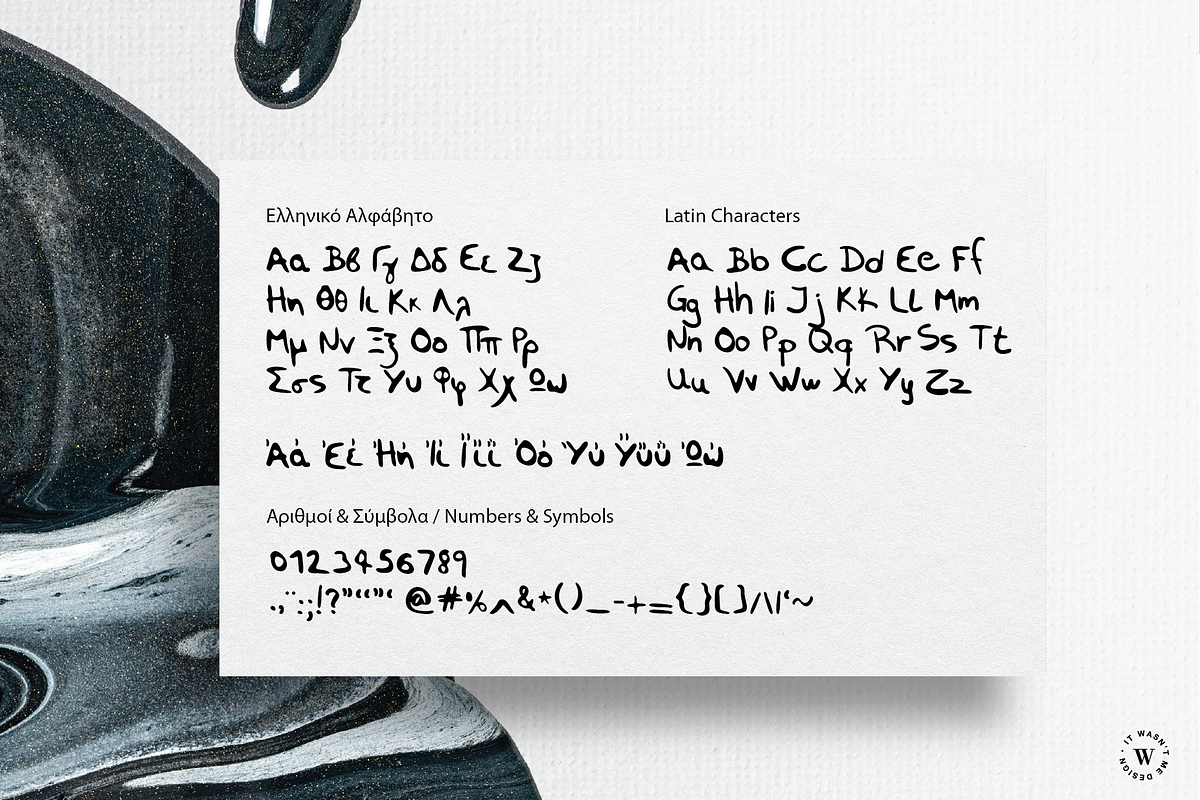 Ελληνικό Αλφάβητο
Αα Ββ Γγ Δδ Εε Ζζ
Ηη Θθ Ιι Κκ Λλ
Μμ Νν Ξξ Οο Ππ Ρρ
Σσς Ττ Υυ Φφ Χχ Ωω
Άά Έέ Ήή Ίί Ϊϊΐ Όό Ύύ Ϋϋΰ Ώώ
Latin Characters
Aa Bb Cc Dd Ee Ff
Gg Hh Ii Jj Kk Ll Mm
Nn Oo Pp Qq Rr Ss Tt
Uu Vv Ww Xx Yy Zz
Αριθμοί & Σύμβολα / Numbers & Symbols
0123456789
.,¨:;!?”“”‘ @#%^&*()_-+={}[]/\|‘~
IT WASN'T ME DESIGN
W